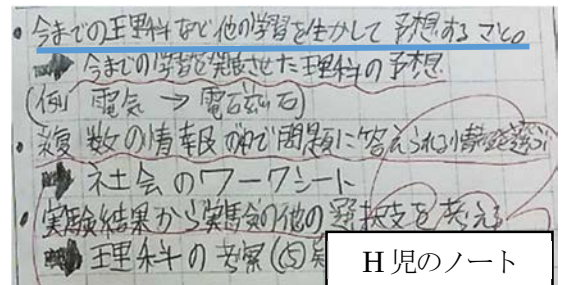 ・今までの理科など他の学習を生かして予想すること。
➡ 今までの学習を発展させた理科の予想
(例 電気 → 電磁石)
・複数の情報の中で問題に答えられる情報を選ぶ
➡ 社会のワークシート
・実験結果から実験の他の選択支を考える
➡ 理科の考察(
H児のノート